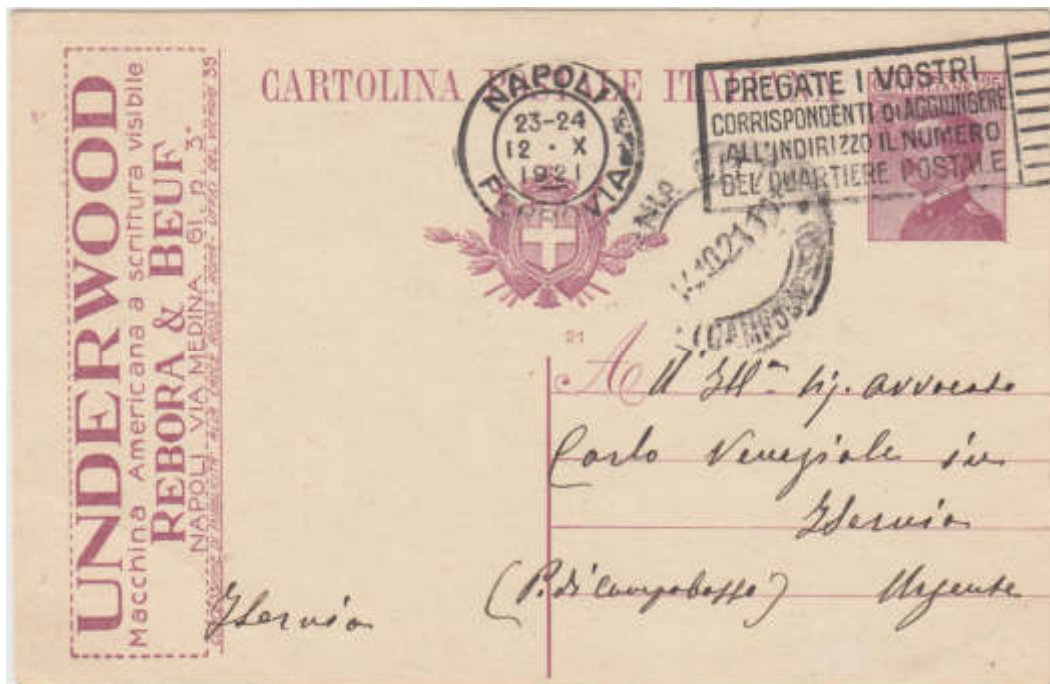 UNDERWOOD
Macchina Americana a scrittura visibile
REBORA & BEUF
NAPOLI - VIA MEDINA 61. p. 3°
CARTOLINA POSTALE ITALIANA
NAPOLI
23-24
12 · X
1921
FERROVIA
PREGATE I VOSTRI
CORRISPONDENTI DI AGGIUNGERE
ALL'INDIRIZZO IL NUMERO
DEL QUARTIERE POSTALE
10.21
CAMPOB
21
A Ill. Sig. Avvocato
Carlo Veneziale in
Isernia
(P. di Campobasso) Urgente
Isernia